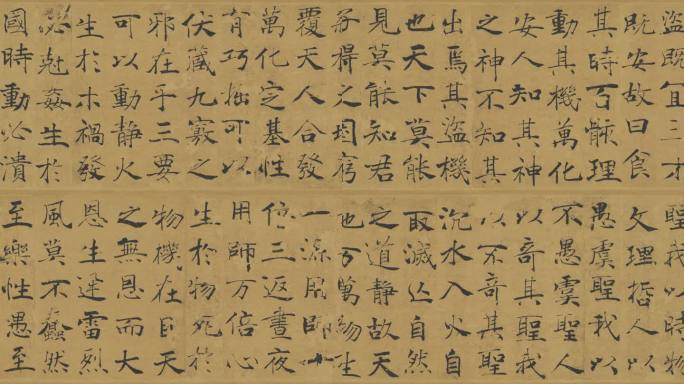 盜既宜三才
既安故曰食
其時百骸理
動其機萬化
安人知其神
之神不知其
出焉其盜機
也天下莫能
見莫能知君
子得之固窮
覆天人合發
萬化定基性
有巧拙可以
伏藏九竅之
邪在乎三要
可以動靜火
生於木禍發
必尅姦生於
國時動必潰
聖我以時物
文理哲人以
愚虞聖我以
不愚虞聖人
以奇其聖我
以不奇其聖
沉水入火自
取滅亡自然
之道靜故天
地万萬物生
一源用師十
倍三返晝夜
用師万倍心
生於物死於
物機在目天
之無恩而大
恩生迅雷烈
風莫不蠢然
至樂性愚至